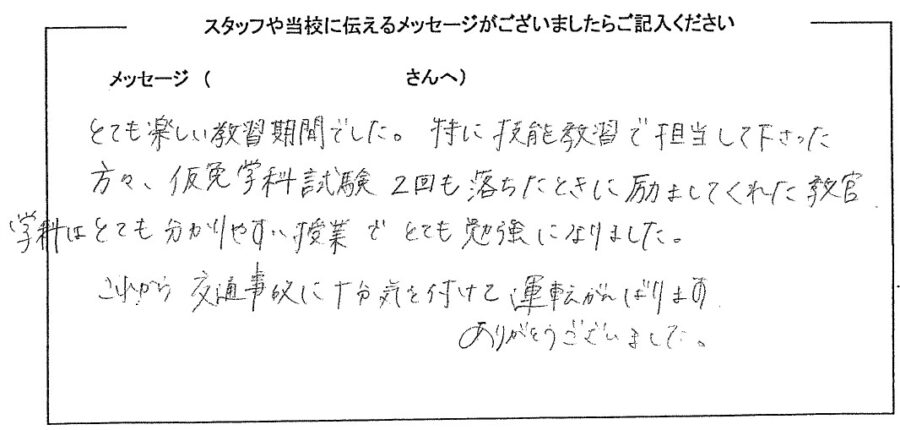 スタッフや当校に伝えるメッセージがございましたらご記入ください
メッセージ（　　　　　　　　　　さんへ）
とても楽しい教習期間でした。特に技能教習で担当して下さった
方々、仮免学科試験2回も落ちたときに励ましてくれた教官
学科はとても分かりやすい授業でとても勉強になりました。
これから交通事故に十分気を付けて運転がんばります
ありがとうございました。